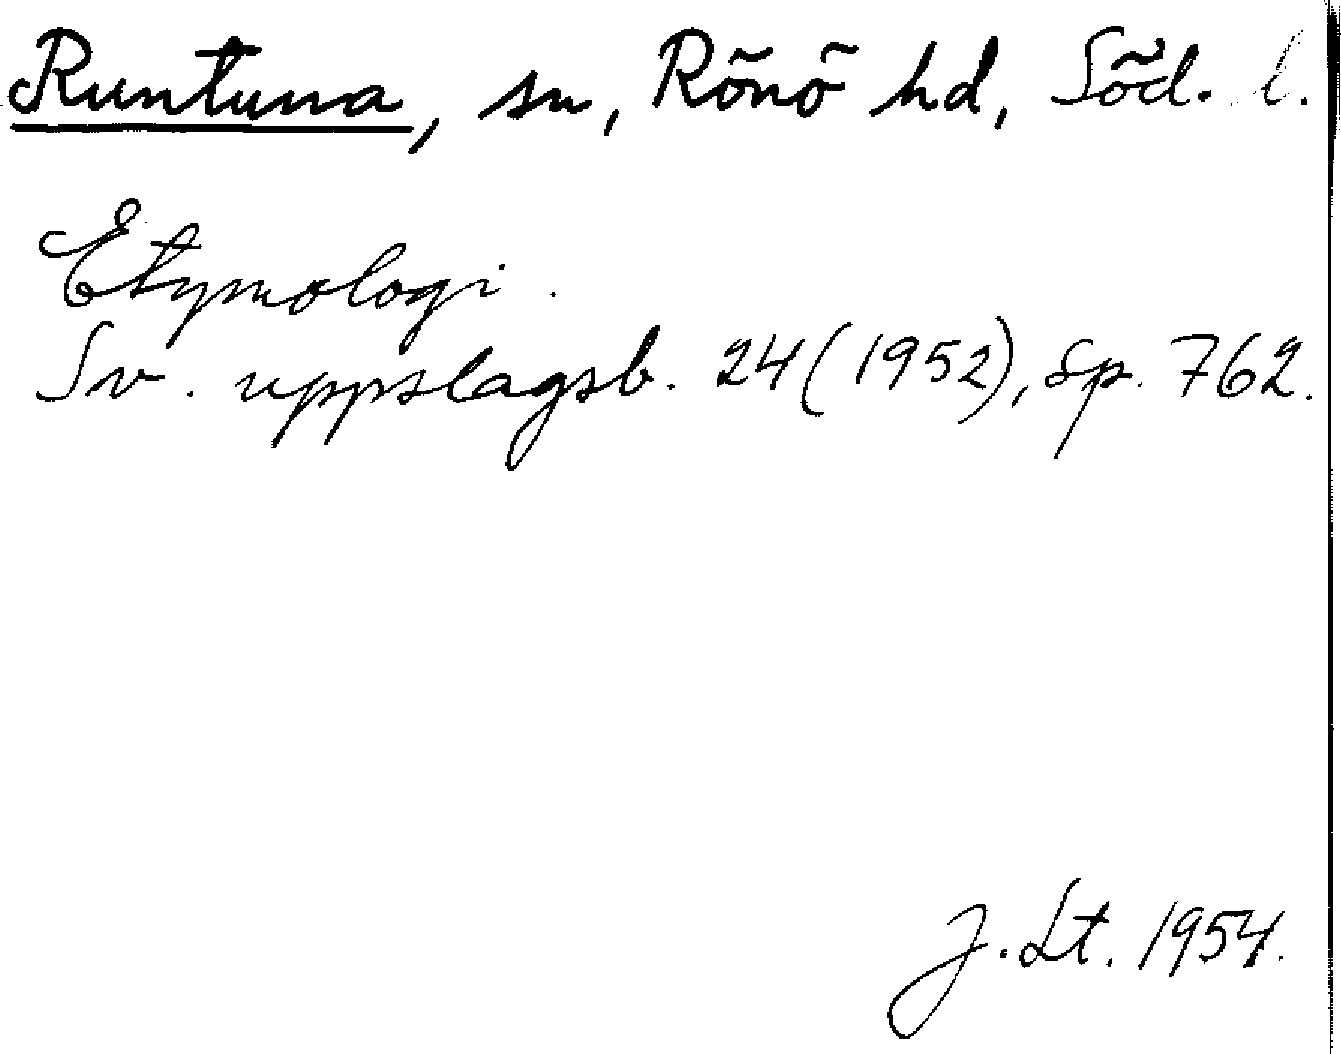 Runtuna, sn, Rönö hd, Söd. l.
Etymologi.
Sv. uppslagsb. 24 (1952), sp. 762.
J. Lt. 1954.